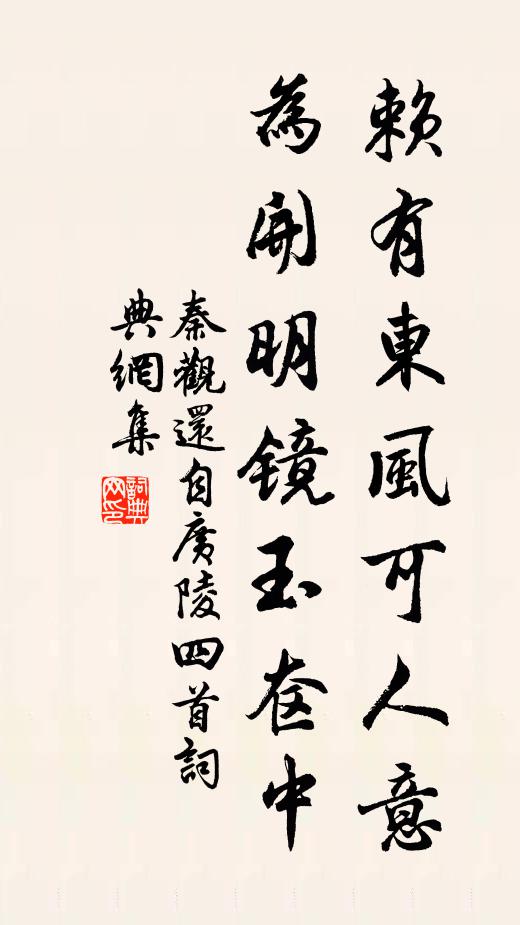 賴有東風可人意
為開明鏡玉奩中
秦觀還自廣陵四首詞
典網集
詞典
网印